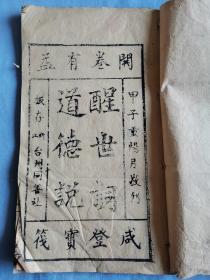 開卷有益
甲子重陽月敬刊
醒世詞
道德說
板存 台州同善社
咸登寶筏